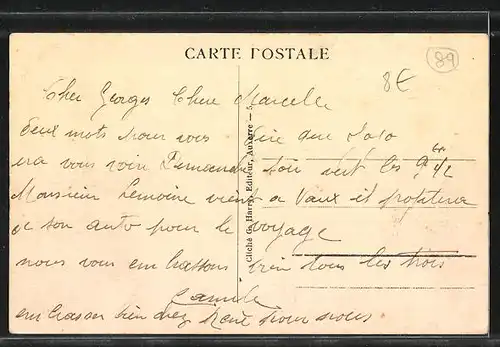 CARTE POSTALE
89
8€
Cher Georges Chere Marcelle
Deux mots pour vous dire que Jojo
ira vous voir Demanche soir vert les 9h 1/2
Monsieur Lemoine vient a Vaux et profitera
de son auto pour le voyage
nous vous embrassons bien tous les trois
Camille
embrasser bien René pour nous
Cliché G. Harry, Editeur, Auxerre — 5